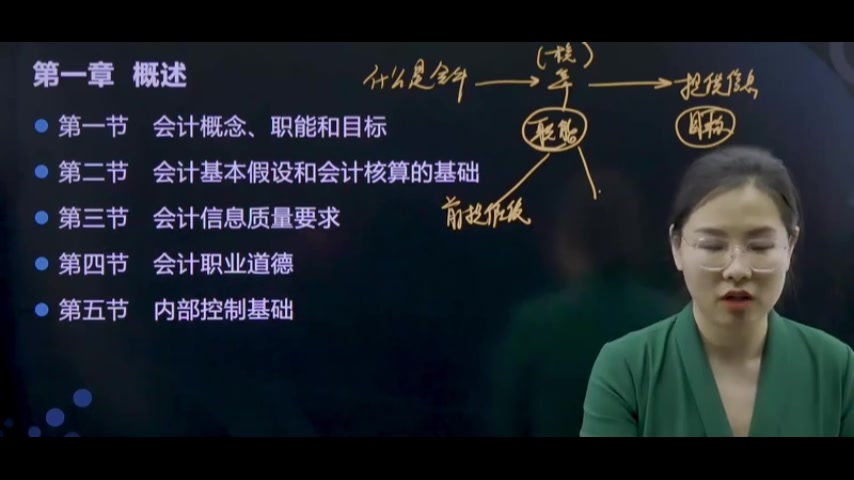 第一章 概述
第一节 会计概念、职能和目标
第二节 会计基本假设和会计核算的基础
第三节 会计信息质量要求
第四节 会计职业道德
第五节 内部控制基础
什么是会计
职能
提供信息
目标